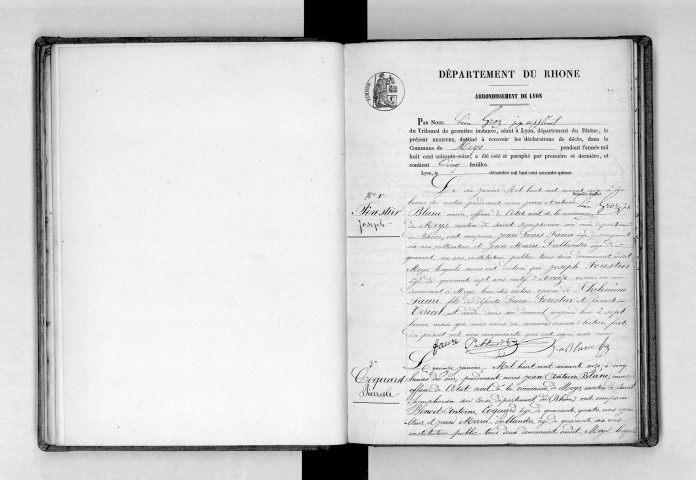 DÉPARTEMENT DU RHONE
ARRONDISSEMENT DE LYON
PAR NOUS, Léon Groz
du Tribunal de première instance, séant à Lyon, département du Rhône, le
présent REGISTRE, destiné à recevoir les déclarations de décès, dans la
Commune de Meys pendant l'année mil
huit cent soixante-seize, a été coté et paraphé par première et dernière, et
contient Cinq feuilles.
Lyon, le décembre mil huit cent soixante-quinze.
N° 1
Forestier
Joseph
Le six janvier Mil huit cent soixante seize à six
heures du matin pardevant nous Jean Antoine
Blanc maire officier de l'état civil de la commune
de Meys canton de Saint Symphorien département
du Rhône, ont comparu Jean Louis Faure âgé de
ans cultivateur et Jean Marie Pallandre âgé de
quarante six ans, instituteur public tous deux demeurant audit
Meys lesquels nous ont déclaré que Joseph Forestier
âgé de quarante sept ans natif d'Aveize
demeurant à Meys époux de Philomène
Faure fils des défunts Forestier et Benoite
Vericel est décédé dans son domicile aujourd'hui à sept
heures ainsi que nous nous en sommes assuré lecture faite
du présent acte aux comparants qui ont signé avec nous
Faure Pallandre J-a Blanc
2
Coquard
Le quinze janvier Mil huit cent soixante seize, à cinq
heures du soir, pardevant nous Jean Antoine Blanc, maire
officier de l'état civil de la commune de Meys canton de Saint
Symphorien sur Coise département du Rhône ont comparu
Benoit Antoine Coquard âgé de quarante quatre ans
et Jean Marie Pallandre âgé de quarante six ans
instituteur public tous deux demeurants audit Meys, lesquels